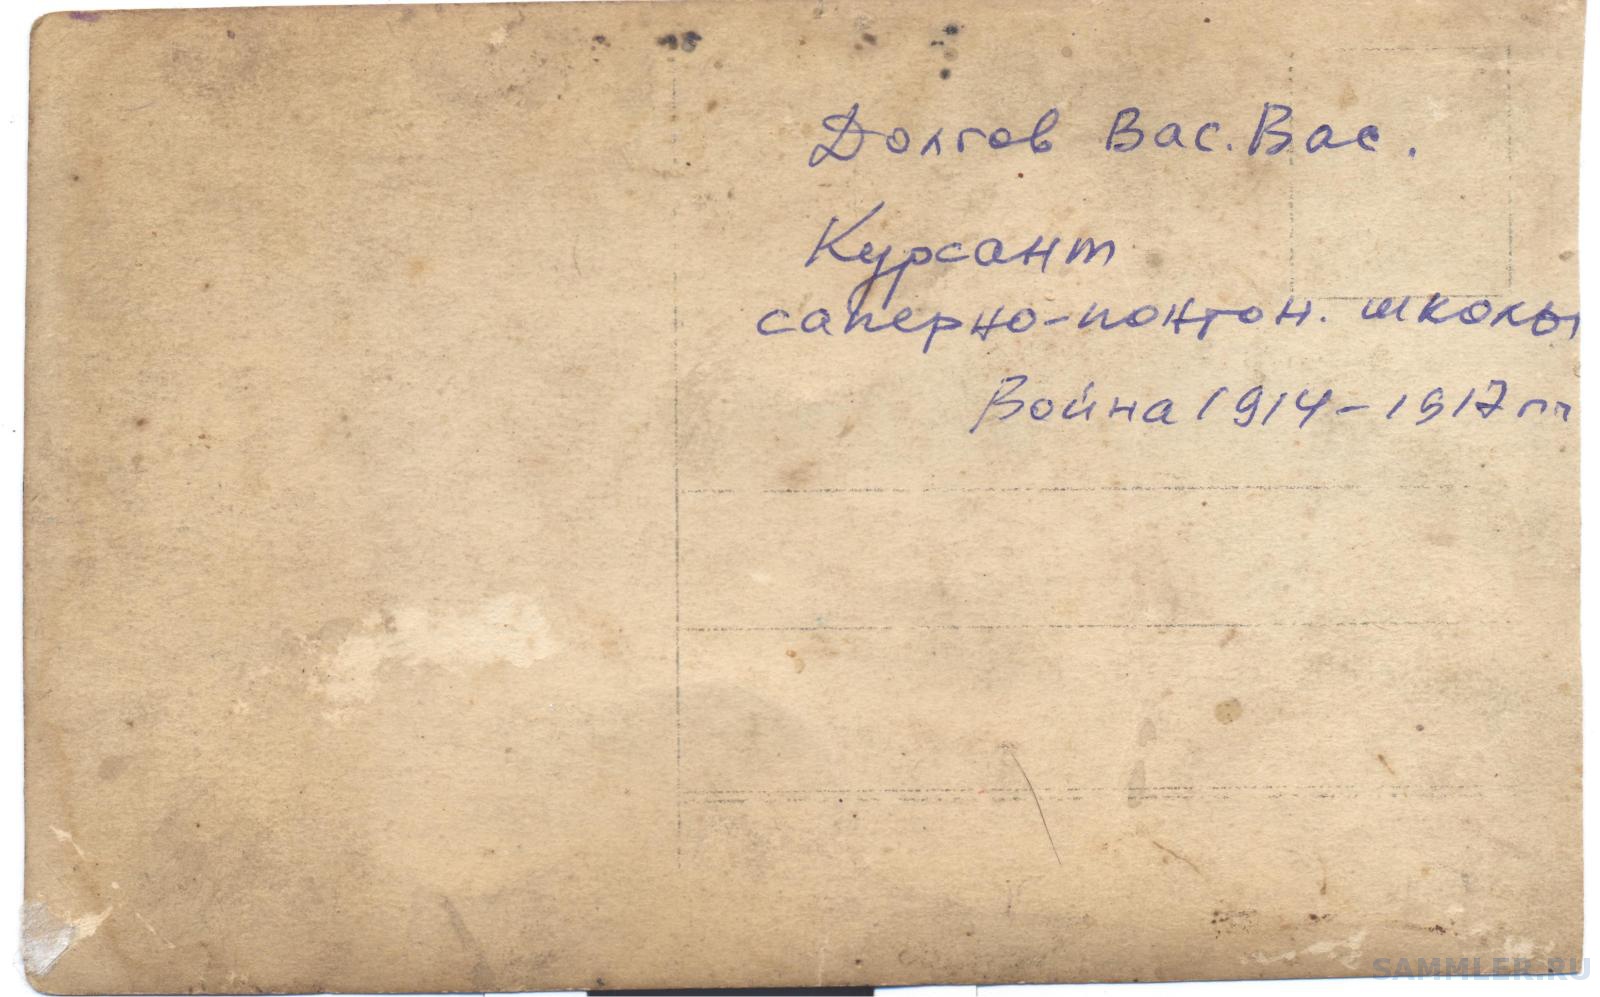 Долгов Вас. Вас.
Курсант
саперно-понтон. школы
Война 1914-1917 гг
SAMMLER.RU